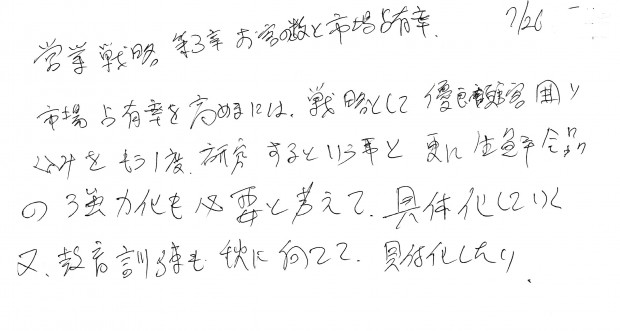 7/26
営業戦略 第3章 お客の数と市場占有率.
市場占有率を高めるには、戦略として優良顧客囲い
込みをもう1度、研究するという事と更に生鮮食品
の強力化も必要と考えて、具体化していく
又、教育訓練も秋に向てて、具体化したい.